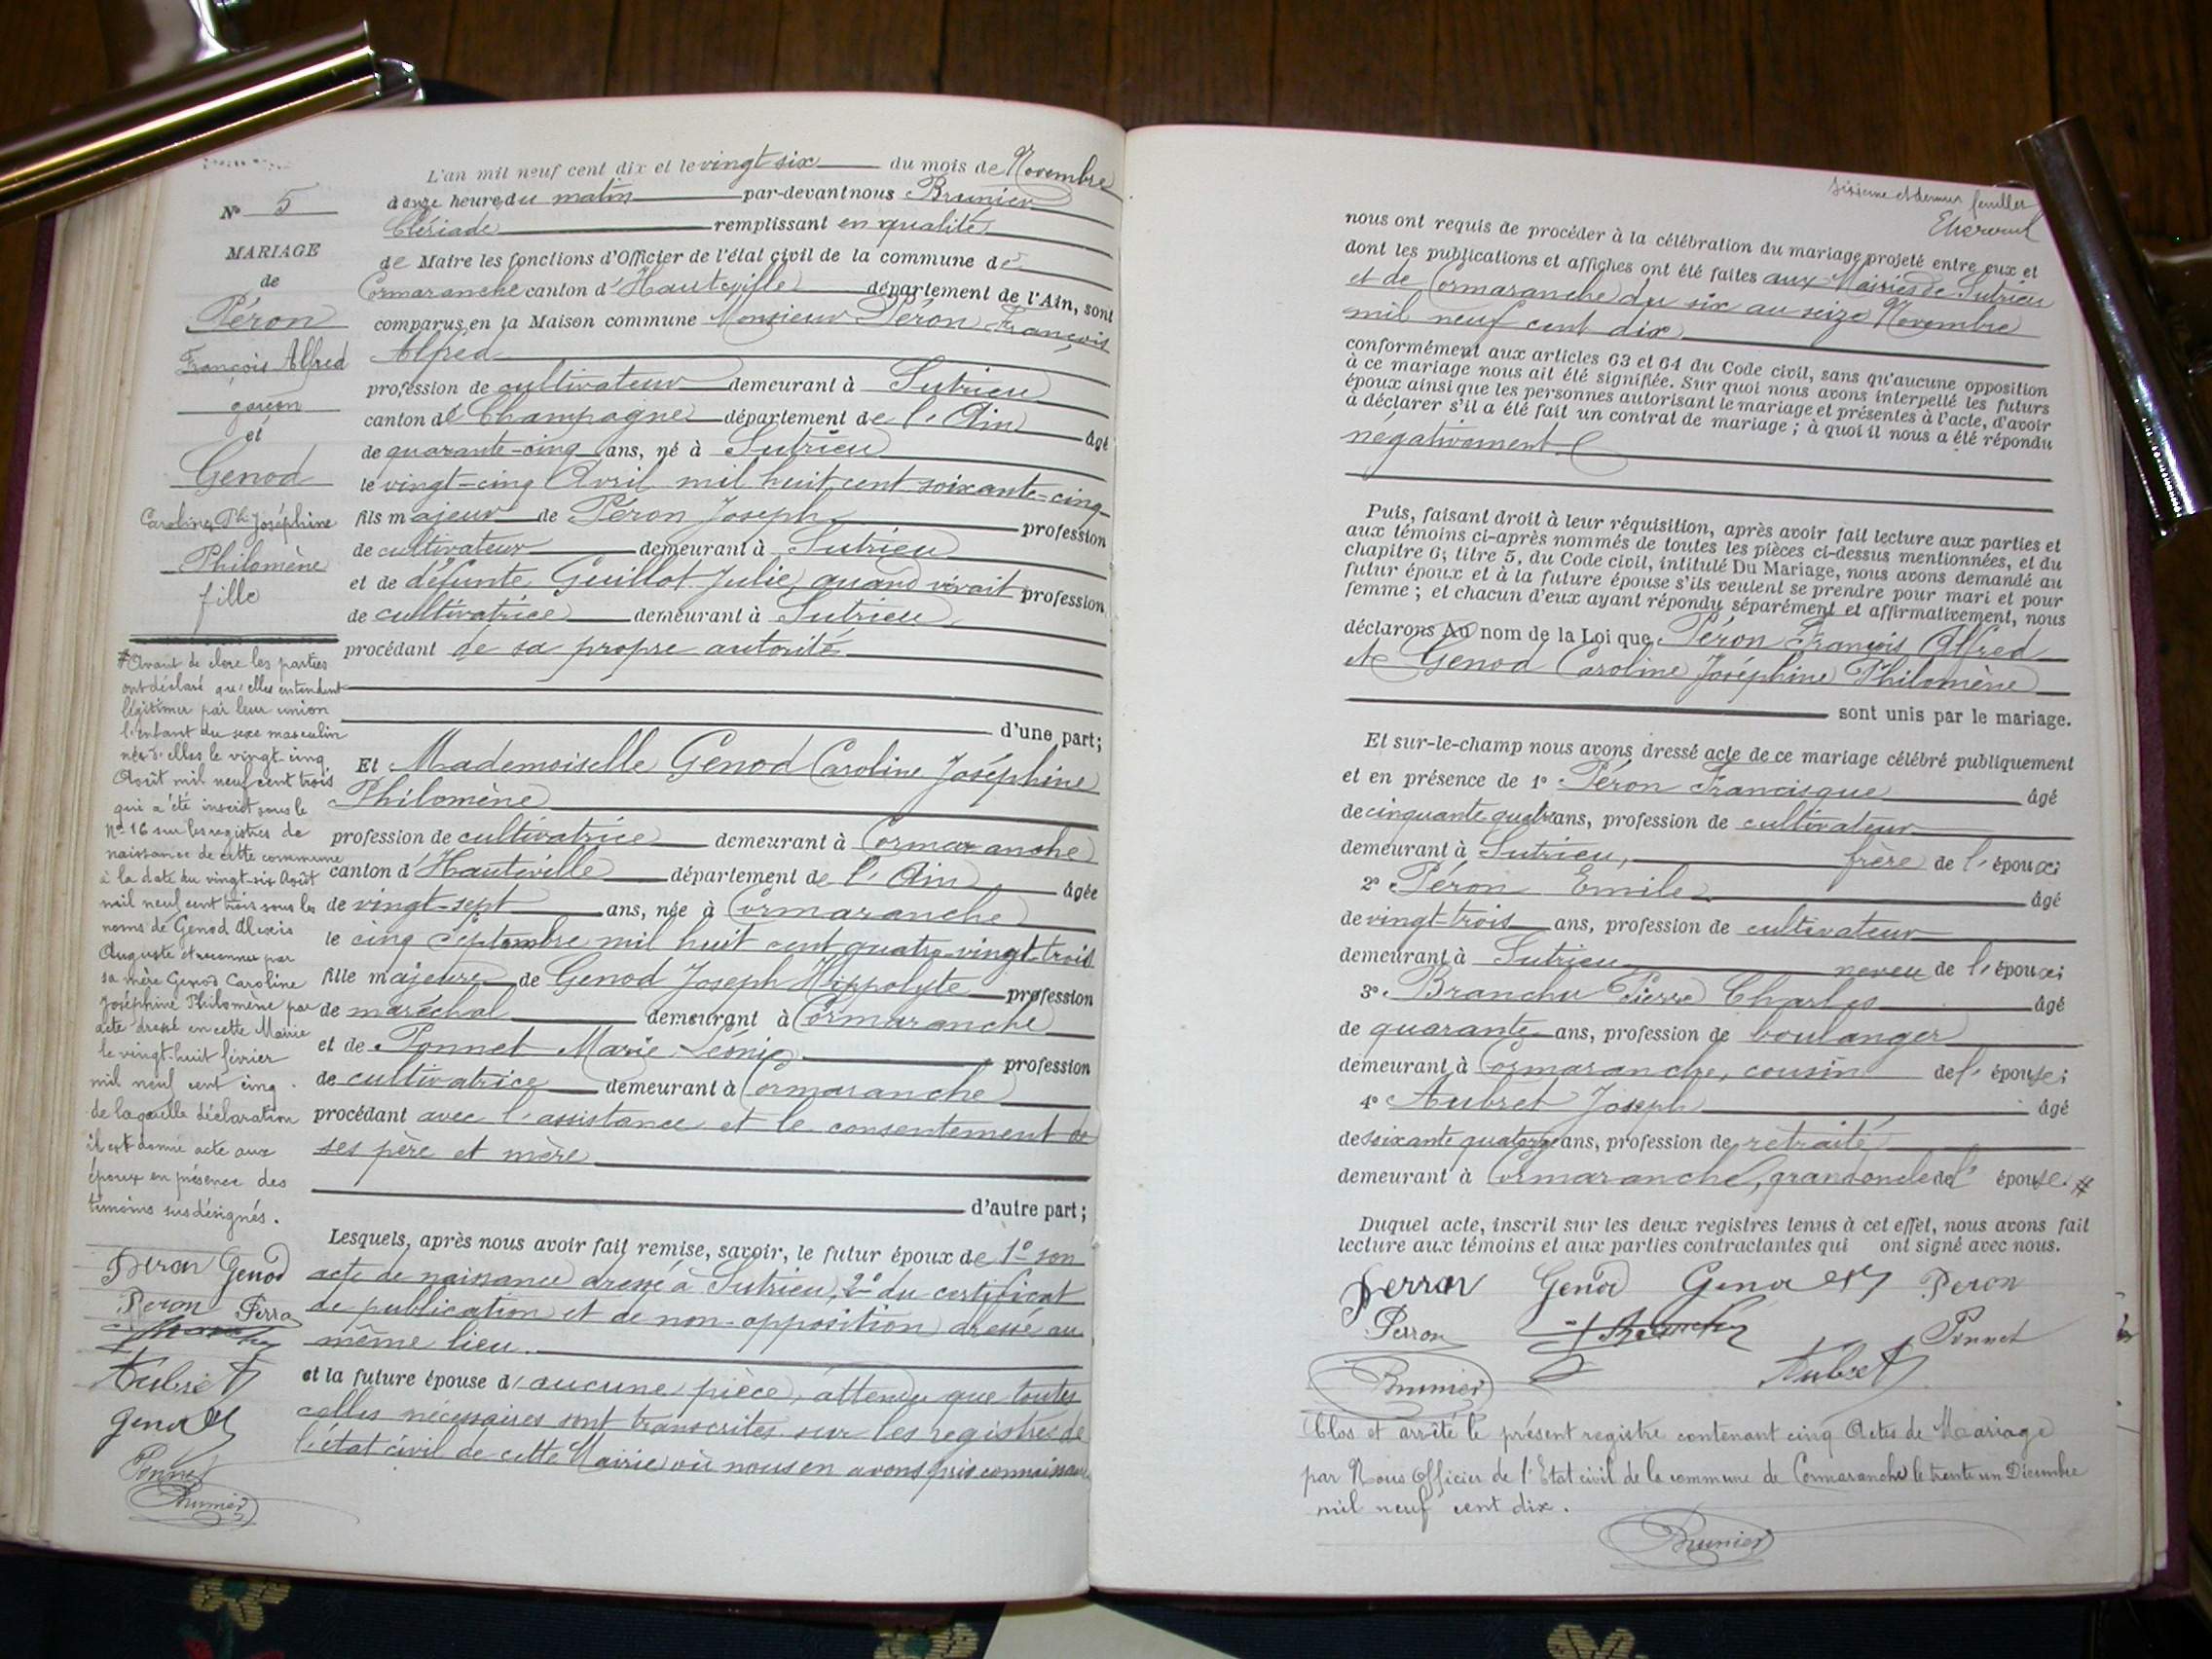 N° 5
MARIAGE
de
Péron
François Alfred
garçon
et
Genod
Caroline Joséphine
Philomène
fille
L'an mil neuf cent dix et le vingt six du mois de Novembre
à onze heures du matin par-devant nous Brunier
Clériade remplissant en qualité
de Maire les fonctions d'Officier de l'état civil de la commune de
Cormaranche canton d'Hauteville département de l'Ain, sont
comparus en la Maison commune Monsieur Péron François
Alfred
profession de cultivateur demeurant à Sutrieu
canton de Champagne département de l'Ain âgé
de quarante-cinq ans, né à Sutrieu
le vingt-cinq Avril mil huit cent soixante-cinq
fils majeur de Péron Joseph profession
de cultivateur demeurant à Sutrieu
et de défunte Guillot Julie, quand vivait profession
de cultivatrice demeurant à Sutrieu
procédant de sa propre autorité
d'une part;
Et Mademoiselle Genod Caroline Joséphine
Philomène
profession de cultivatrice demeurant à Cormaranche
canton d'Hauteville département de l'Ain, âgée
de vingt-sept ans, née à Cormaranche
le cinq Septembre mil huit cent quatre-vingt-trois
fille majeure de Genod Joseph Hippolyte profession
de maréchal demeurant à Cormaranche
et de Ponnet Marie Léonie profession
de cultivatrice demeurant à Cormaranche
procédant avec l'assistance et le consentement de
ses père et mère
d'autre part;
Lesquels, après nous avoir fait remise, savoir, le futur époux de 1° son
acte de naissance dressé à Sutrieu, 2° du certificat
de publication et de non-opposition dressé au
même lieu.
et la future épouse d'aucune pièce, attendu que toutes
celles nécessaires sont transcrites sur les registres de
l'état civil de cette Mairie où nous en avons pris connaissance
# Avant de clore les parties
ont déclaré qu'elles entendent
légitimer par leur union
l'enfant du sexe masculin
né d'elles le vingt-cinq
Août mil neuf cent trois
qui a été inscrit sous le
N° 16 sur les registres de
naissance de cette commune
à la date du vingt-six Août
mil neuf cent trois sous les
noms de Genod Alexis
Auguste et reconnu par
sa mère Genod Caroline
Joséphine Philomène par
acte dressé en cette Mairie
le vingt-huit février
mil neuf cent cinq.
de laquelle déclaration
il est donné acte aux
époux en présence des
témoins susdésignés.
Perron Genod
Peron Perron
Aubret
Genod
Ponnet
Brunier
Sixième et dernier feuillet
nous ont requis de procéder à la célébration du mariage projeté entre eux et
dont les publications et affiches ont été faites aux Mairies de Sutrieu
et de Cormaranche du six au seize Novembre
mil neuf cent dix
conformément aux articles 63 et 64 du Code civil, sans qu'aucune opposition
à ce mariage nous ait été signifiée. Sur quoi nous avons interpellé les futurs
époux ainsi que les personnes autorisant le mariage et présentes à l'acte, d'avoir
à déclarer s'il a été fait un contrat de mariage; à quoi il nous a été répondu
négativement.
Puis, faisant droit à leur réquisition, après avoir fait lecture aux parties et
aux témoins ci-après nommés de toutes les pièces ci-dessus mentionnées, et du
chapitre 6; titre 5, du Code civil, intitulé Du Mariage, nous avons demandé au
futur époux et à la future épouse s'ils veulent se prendre pour mari et pour
femme; et chacun d'eux ayant répondu séparément et affirmativement, nous
déclarons Au nom de la Loi que Péron François Alfred
et Genod Caroline Joséphine Philomène
sont unis par le mariage.
Et sur-le-champ nous avons dressé acte de ce mariage célébré publiquement
et en présence de 1° Péron Francisque âgé
de cinquante quatre ans, profession de cultivateur
demeurant à Sutrieu, frère de l'époux;
2° Péron Emile âgé
de vingt-trois ans, profession de cultivateur
demeurant à Sutrieu neveu de l'époux;
3° Branchu Pierre Charles âgé
de quarante ans, profession de boulanger
demeurant à Cormaranche, cousin de l'épouse;
4° Aubret Joseph âgé
de soixante quatorze ans, profession de retraité
demeurant à Cormaranche, grand oncle de l'épouse. #
Duquel acte, inscrit sur les deux registres tenus à cet effet, nous avons fait
lecture aux témoins et aux parties contractantes qui ont signé avec nous.
Perron Genod Genod Peron
Perron Ponnet
Brunier Aubret
Clos et arrêté le présent registre contenant cinq Actes de Mariage
par Nous Officier de l'Etat civil de la commune de Cormaranche le trente un Décembre
mil neuf cent dix.
Brunier